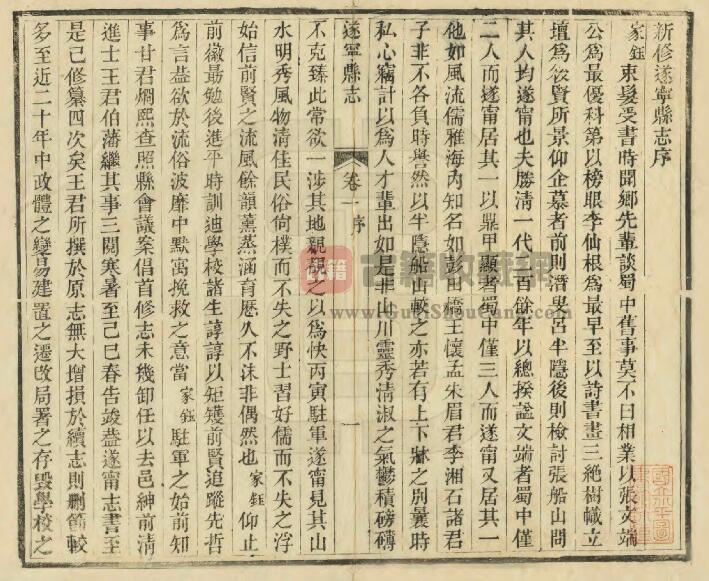 新修遂寧縣志序
家鈺束髮受書時聞鄉先輩談蜀中舊事莫不曰相業以張文端
公爲最優科第以榜眼李仙根爲最早至以詩書畫三絕樹幟立
壇爲欽賢所景仰企慕者前則澘叟呂半隱後則檢討張船山問
其人均遂甯也夫勝清一代二百餘年以總揆諡文端者蜀中僅
二人而遂甯居其一以鼎甲顯者蜀中僅三人而遂甯又居其一
他如風流儒雅海內知名如彭田橋王懷孟朱眉君李湘石諸君
子非不各負時譽然以半隱船山較之亦若有上下牀之別曩時
私心竊計以爲人才輩出如是非山川靈秀清淑之氣鬱積磅礴
遂寧縣志
卷一
序
一
不克臻此常欲一涉其地親覘之以爲快丙寅駐軍遂甯見其山
水明秀風物清佳民俗尙樸而不失之野士習好儒而不失之浮
始信前賢之流風餘韻薰蒸涵育歷久不沫非偶然也家鈺仰止
前徽勗勉後進平時訓迪學校諸生諄諄以矩矱前賢追蹤先哲
爲言葢欲於流俗波靡中默寓挽救之意當家鈺駐軍之始前知
事甘君燜熙查照縣會議案倡首修志未幾卸任以去邑紳前清
進士王君伯藩繼其事三閱寒暑至己巳春告竣葢遂甯志書至
是已修纂四次矣王君所撰於原志無大增損於續志則刪節較
多至近二十年中政體之變易建置之遷改局署之存毀學校之
古籍收藏網
www.GuJiShouCang.com